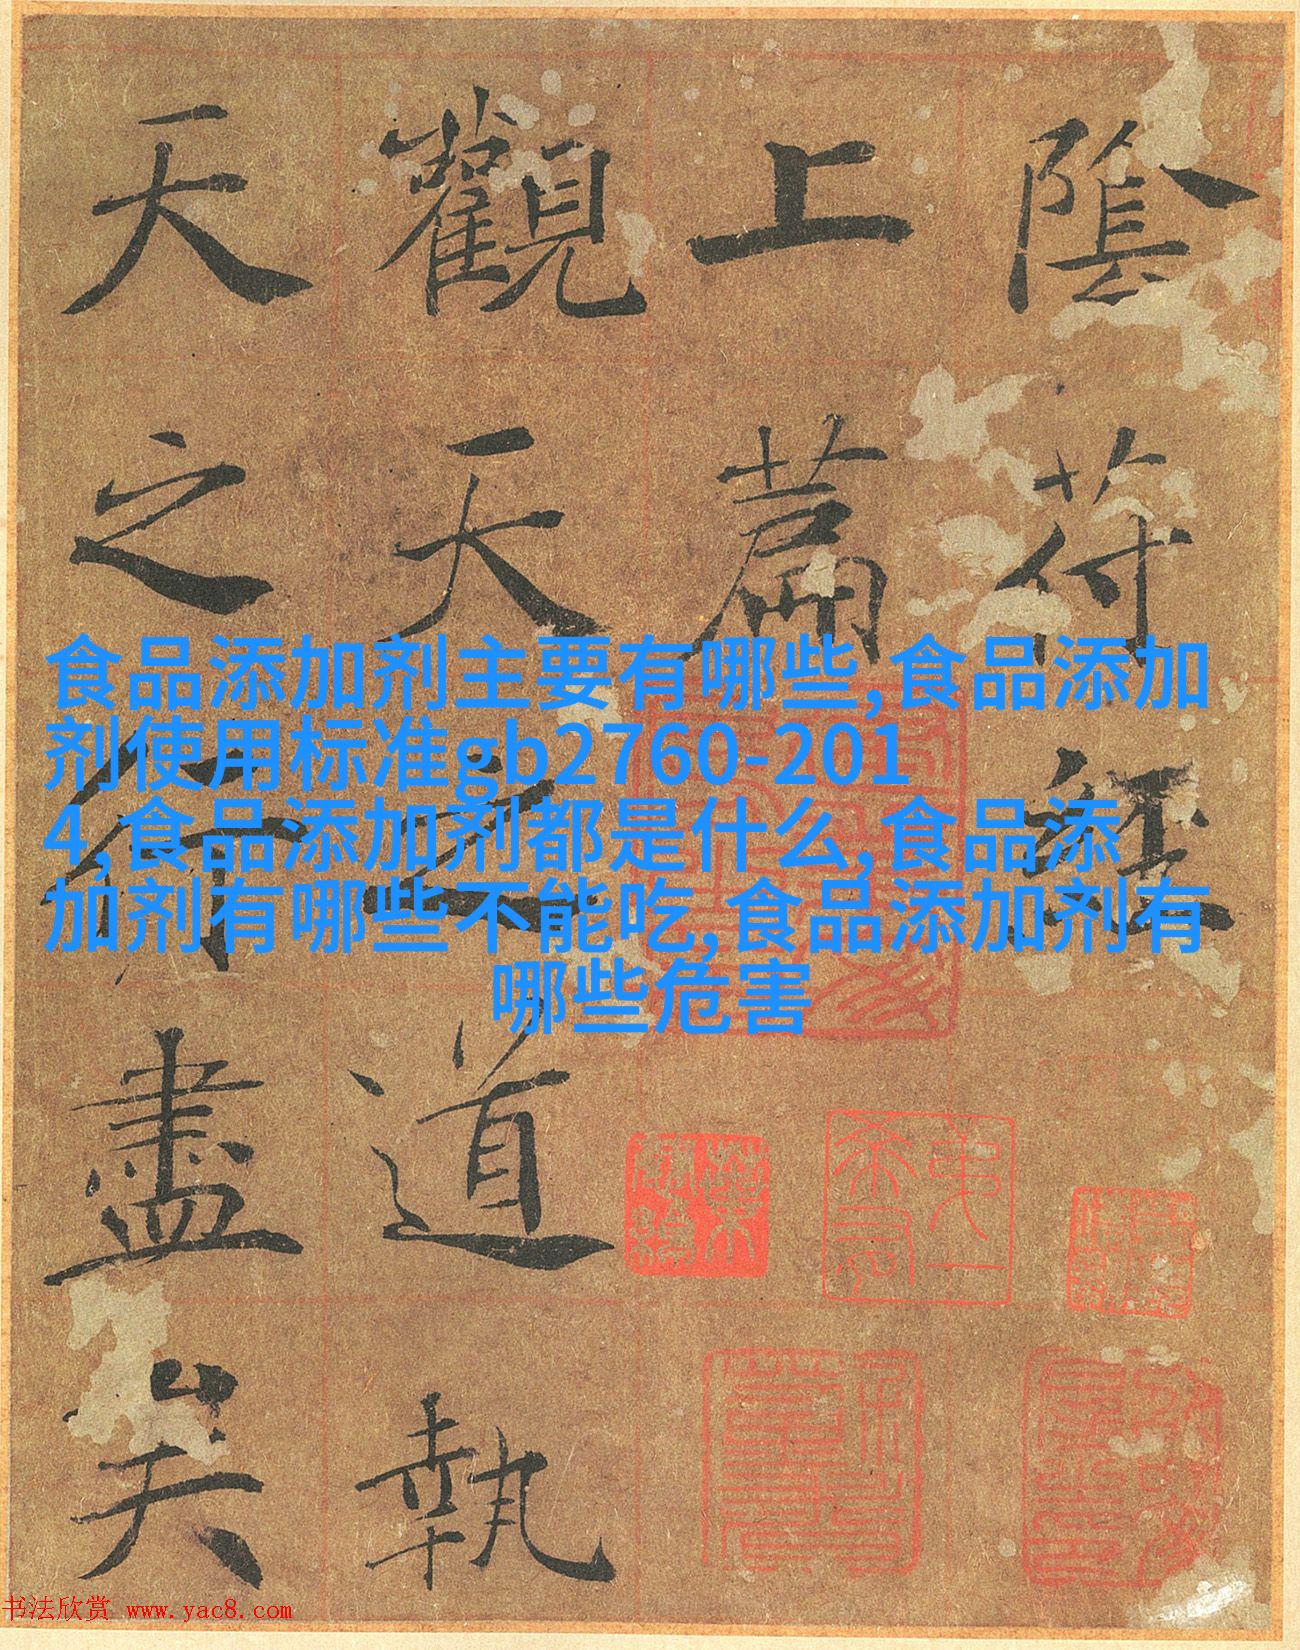 陰符經
上篇
觀天之道執
天之行盡矣
食品添加剂主要有哪些,食品添加
剂使用标准gb2760-201
4,食品添加剂都是什么,食品添
加剂有哪些不能吃,食品添加剂有
哪些危害
书法欣赏 www.yac8.com